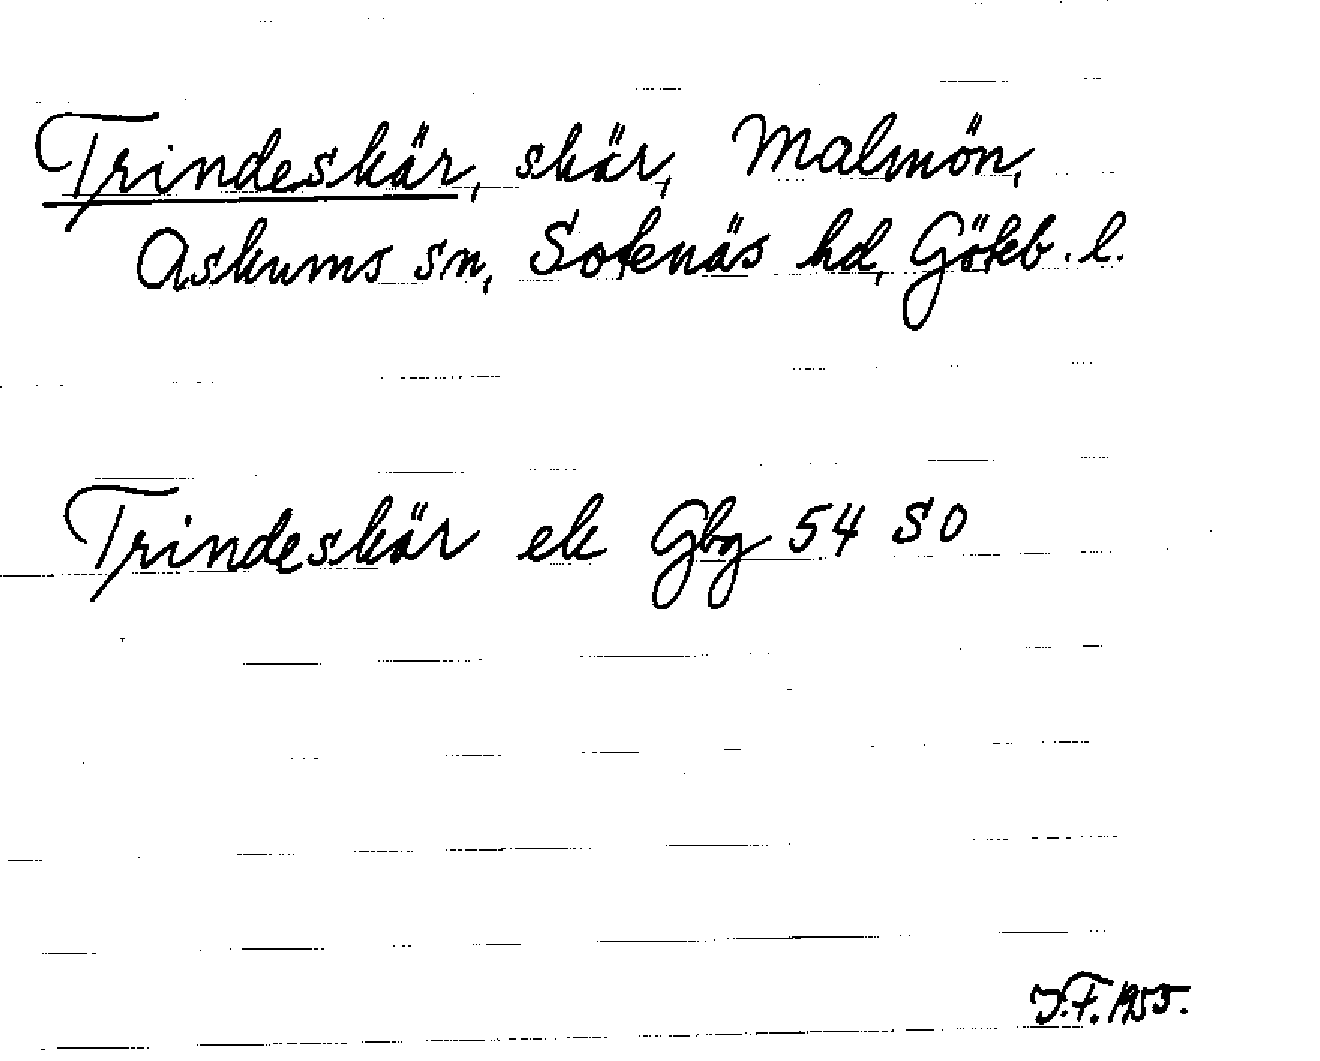 Trindeskär, skär, Malmön,
Askums sn, Sotenäs hd, Göteb. l.
Trindeskär ek Gbg 54 SO
J.F. 1955.